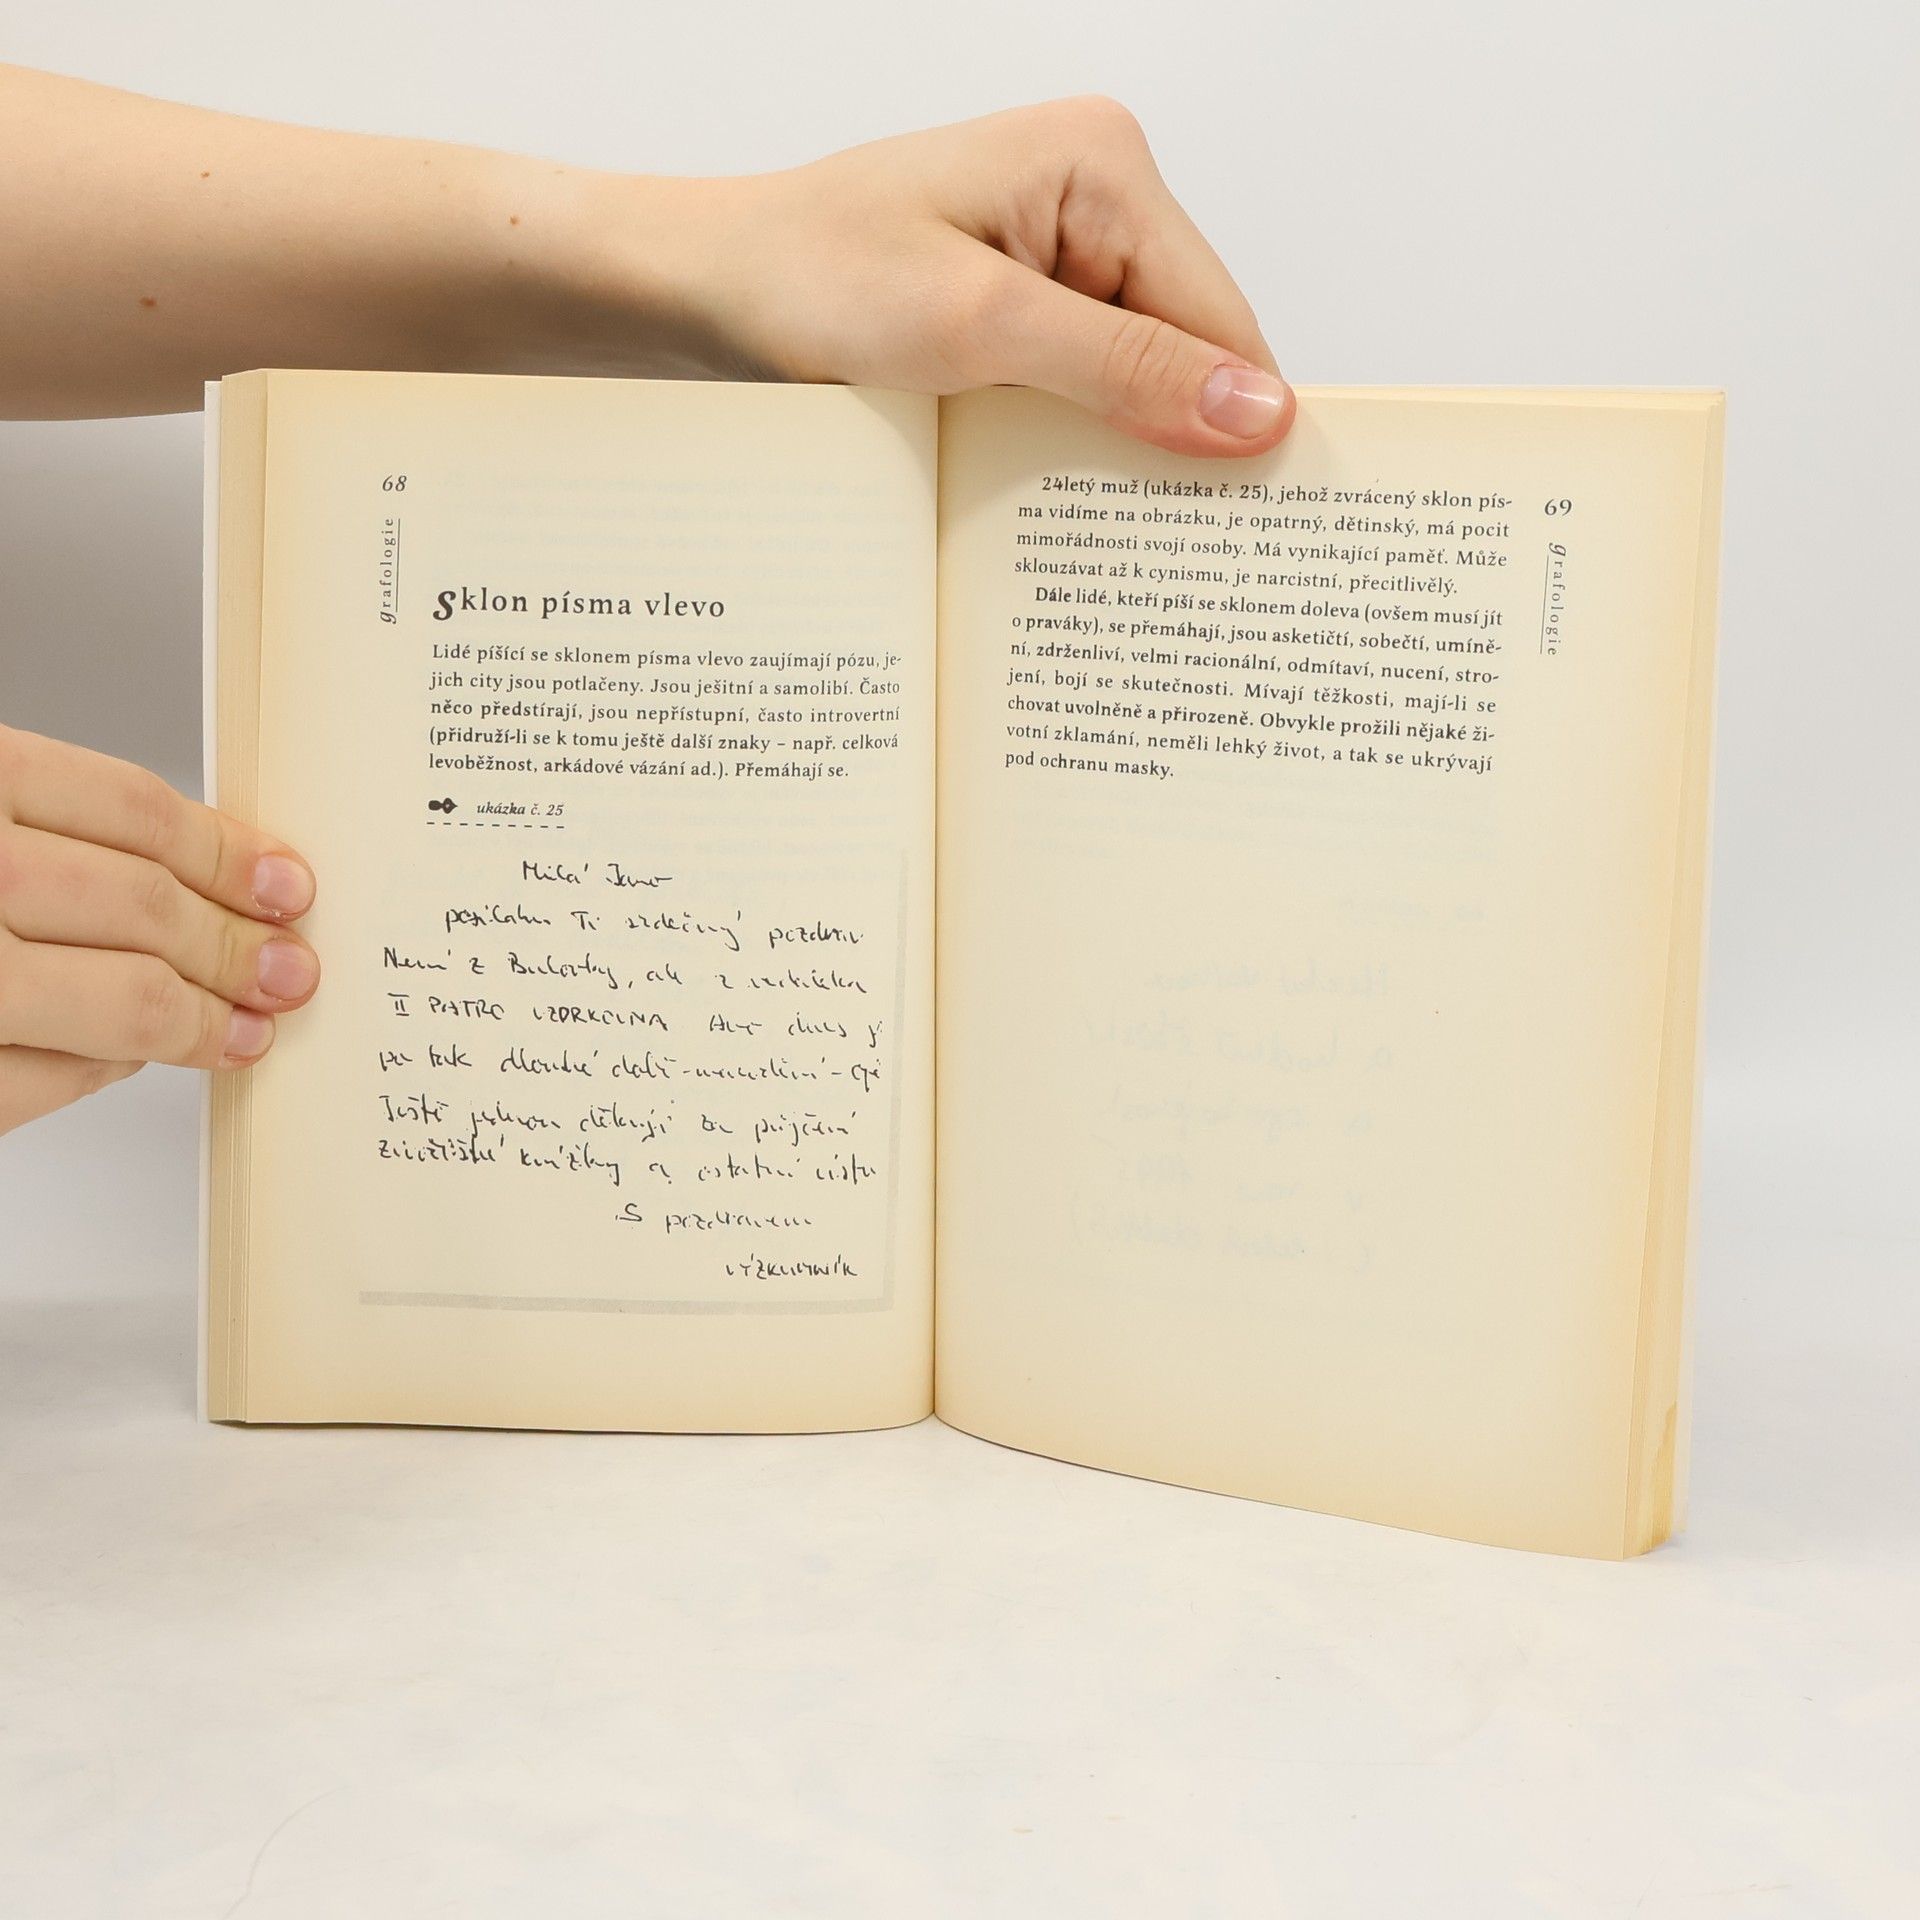 68
grafologie
Sklon písma vlevo
Lidé píšící se sklonem písma vlevo zaujímají pózu, je-
jich city jsou potlačeny. Jsou ješitní a samolibí. Často
něco předstírají, jsou nepřístupní, často introvertní
(přidruží-li se k tomu ještě další znaky – např. celková
levoběžnost, arkádové vázání ad.). Přemáhají se.
ukázka č. 25
Milá Jano
posílám Ti srdečný pozdrav.
Není z Bulovky, ale z
II PATRO
po tak dlouhé době
Ještě jednou děkuji za půjčení
knížky a ostatní
S pozdravem
VÝZKUMNÍK
24letý muž (ukázka č. 25), jehož zvrácený sklon pís-
ma vidíme na obrázku, je opatrný, dětinský, má pocit
mimořádnosti svojí osoby. Má vynikající paměť. Může
sklouzávat až k cynismu, je narcistní, přecitlivělý.
Dále lidé, kteří píší se sklonem doleva (ovšem musí jít
o praváky), se přemáhají, jsou asketičtí, sobečtí, umíně-
ní, zdrženliví, velmi racionální, odmítaví, nucení, stro-
jení, bojí se skutečnosti. Mívají těžkosti, mají-li se
chovat uvolněně a přirozeně. Obvykle prožili nějaké ži-
votní zklamání, neměli lehký život, a tak se ukrývají
pod ochranu masky.
69
grafologie